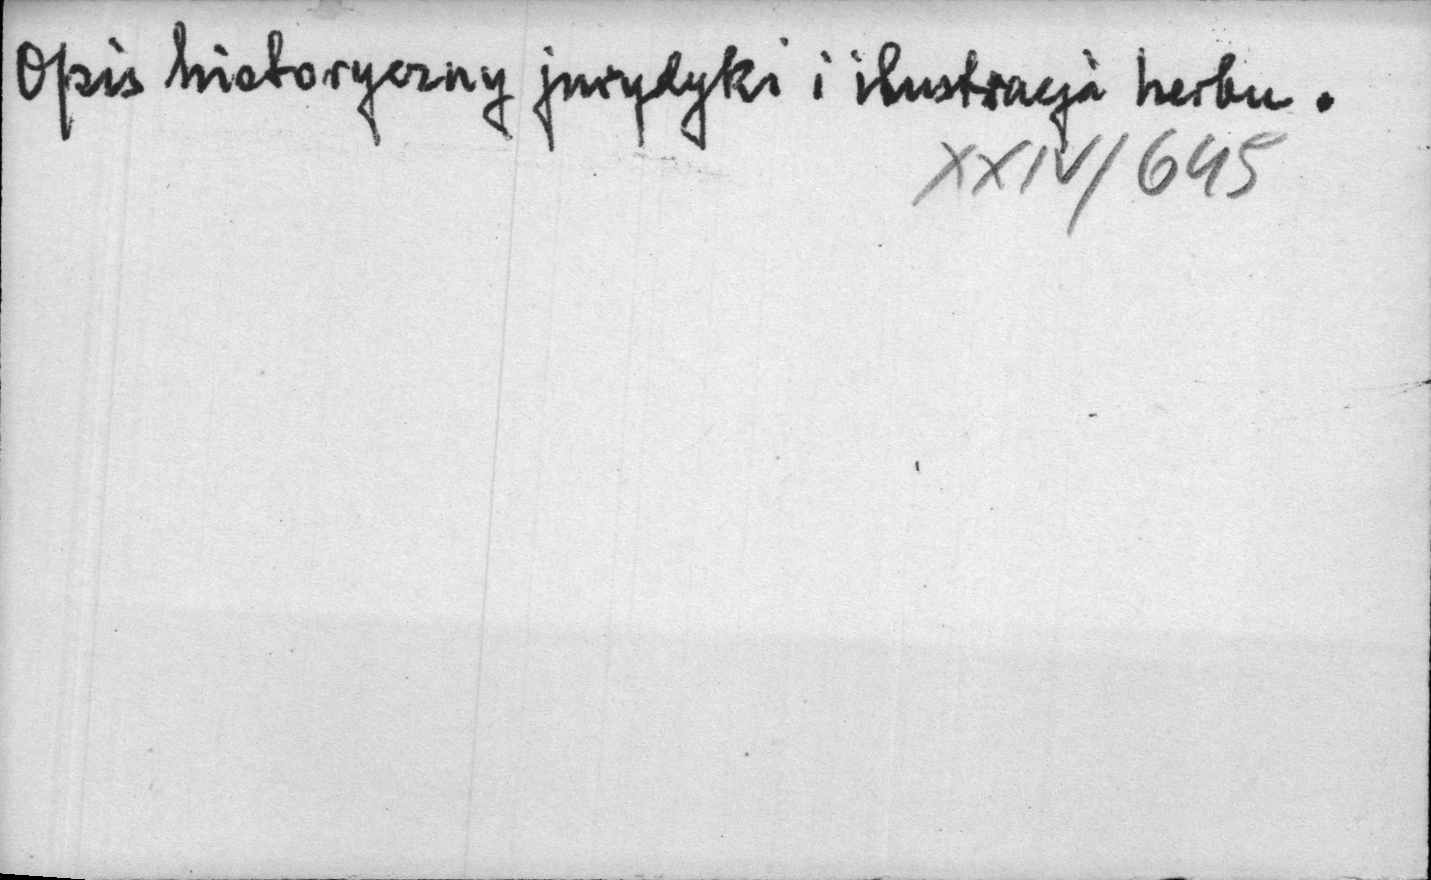 Opis historyczny jurydyki i ilustracja herbu.
XXIV/645